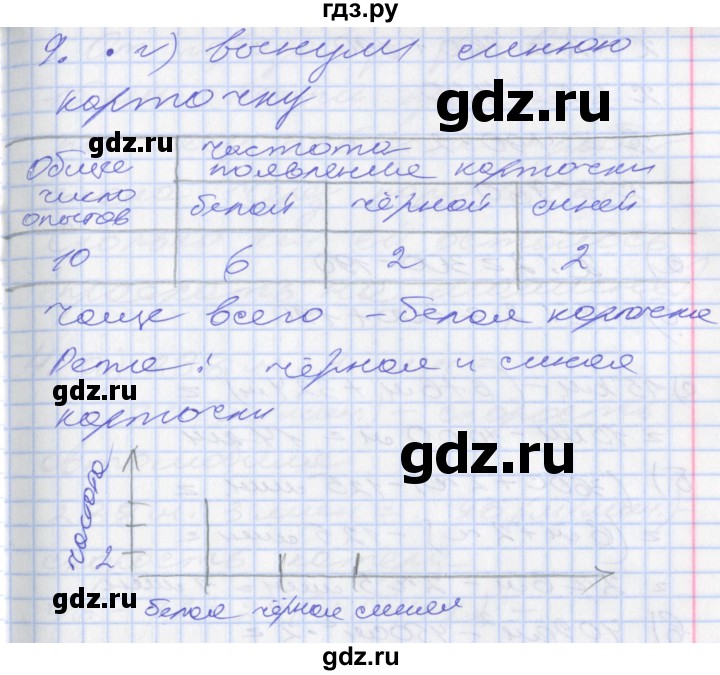 гдз.ру
9. • г) вынули синюю
карточку
gdz.ru
gdz.ru
Общее число опытов
частота появление карточки
белой чёрной синей
10 6 2 2
чаще всего - белая карточка
Реже: чёрная и синяя
gdz.ru
карточки
gdz.ru
частота
2
gdz.ru
белая чёрная синяя
gdz.ru